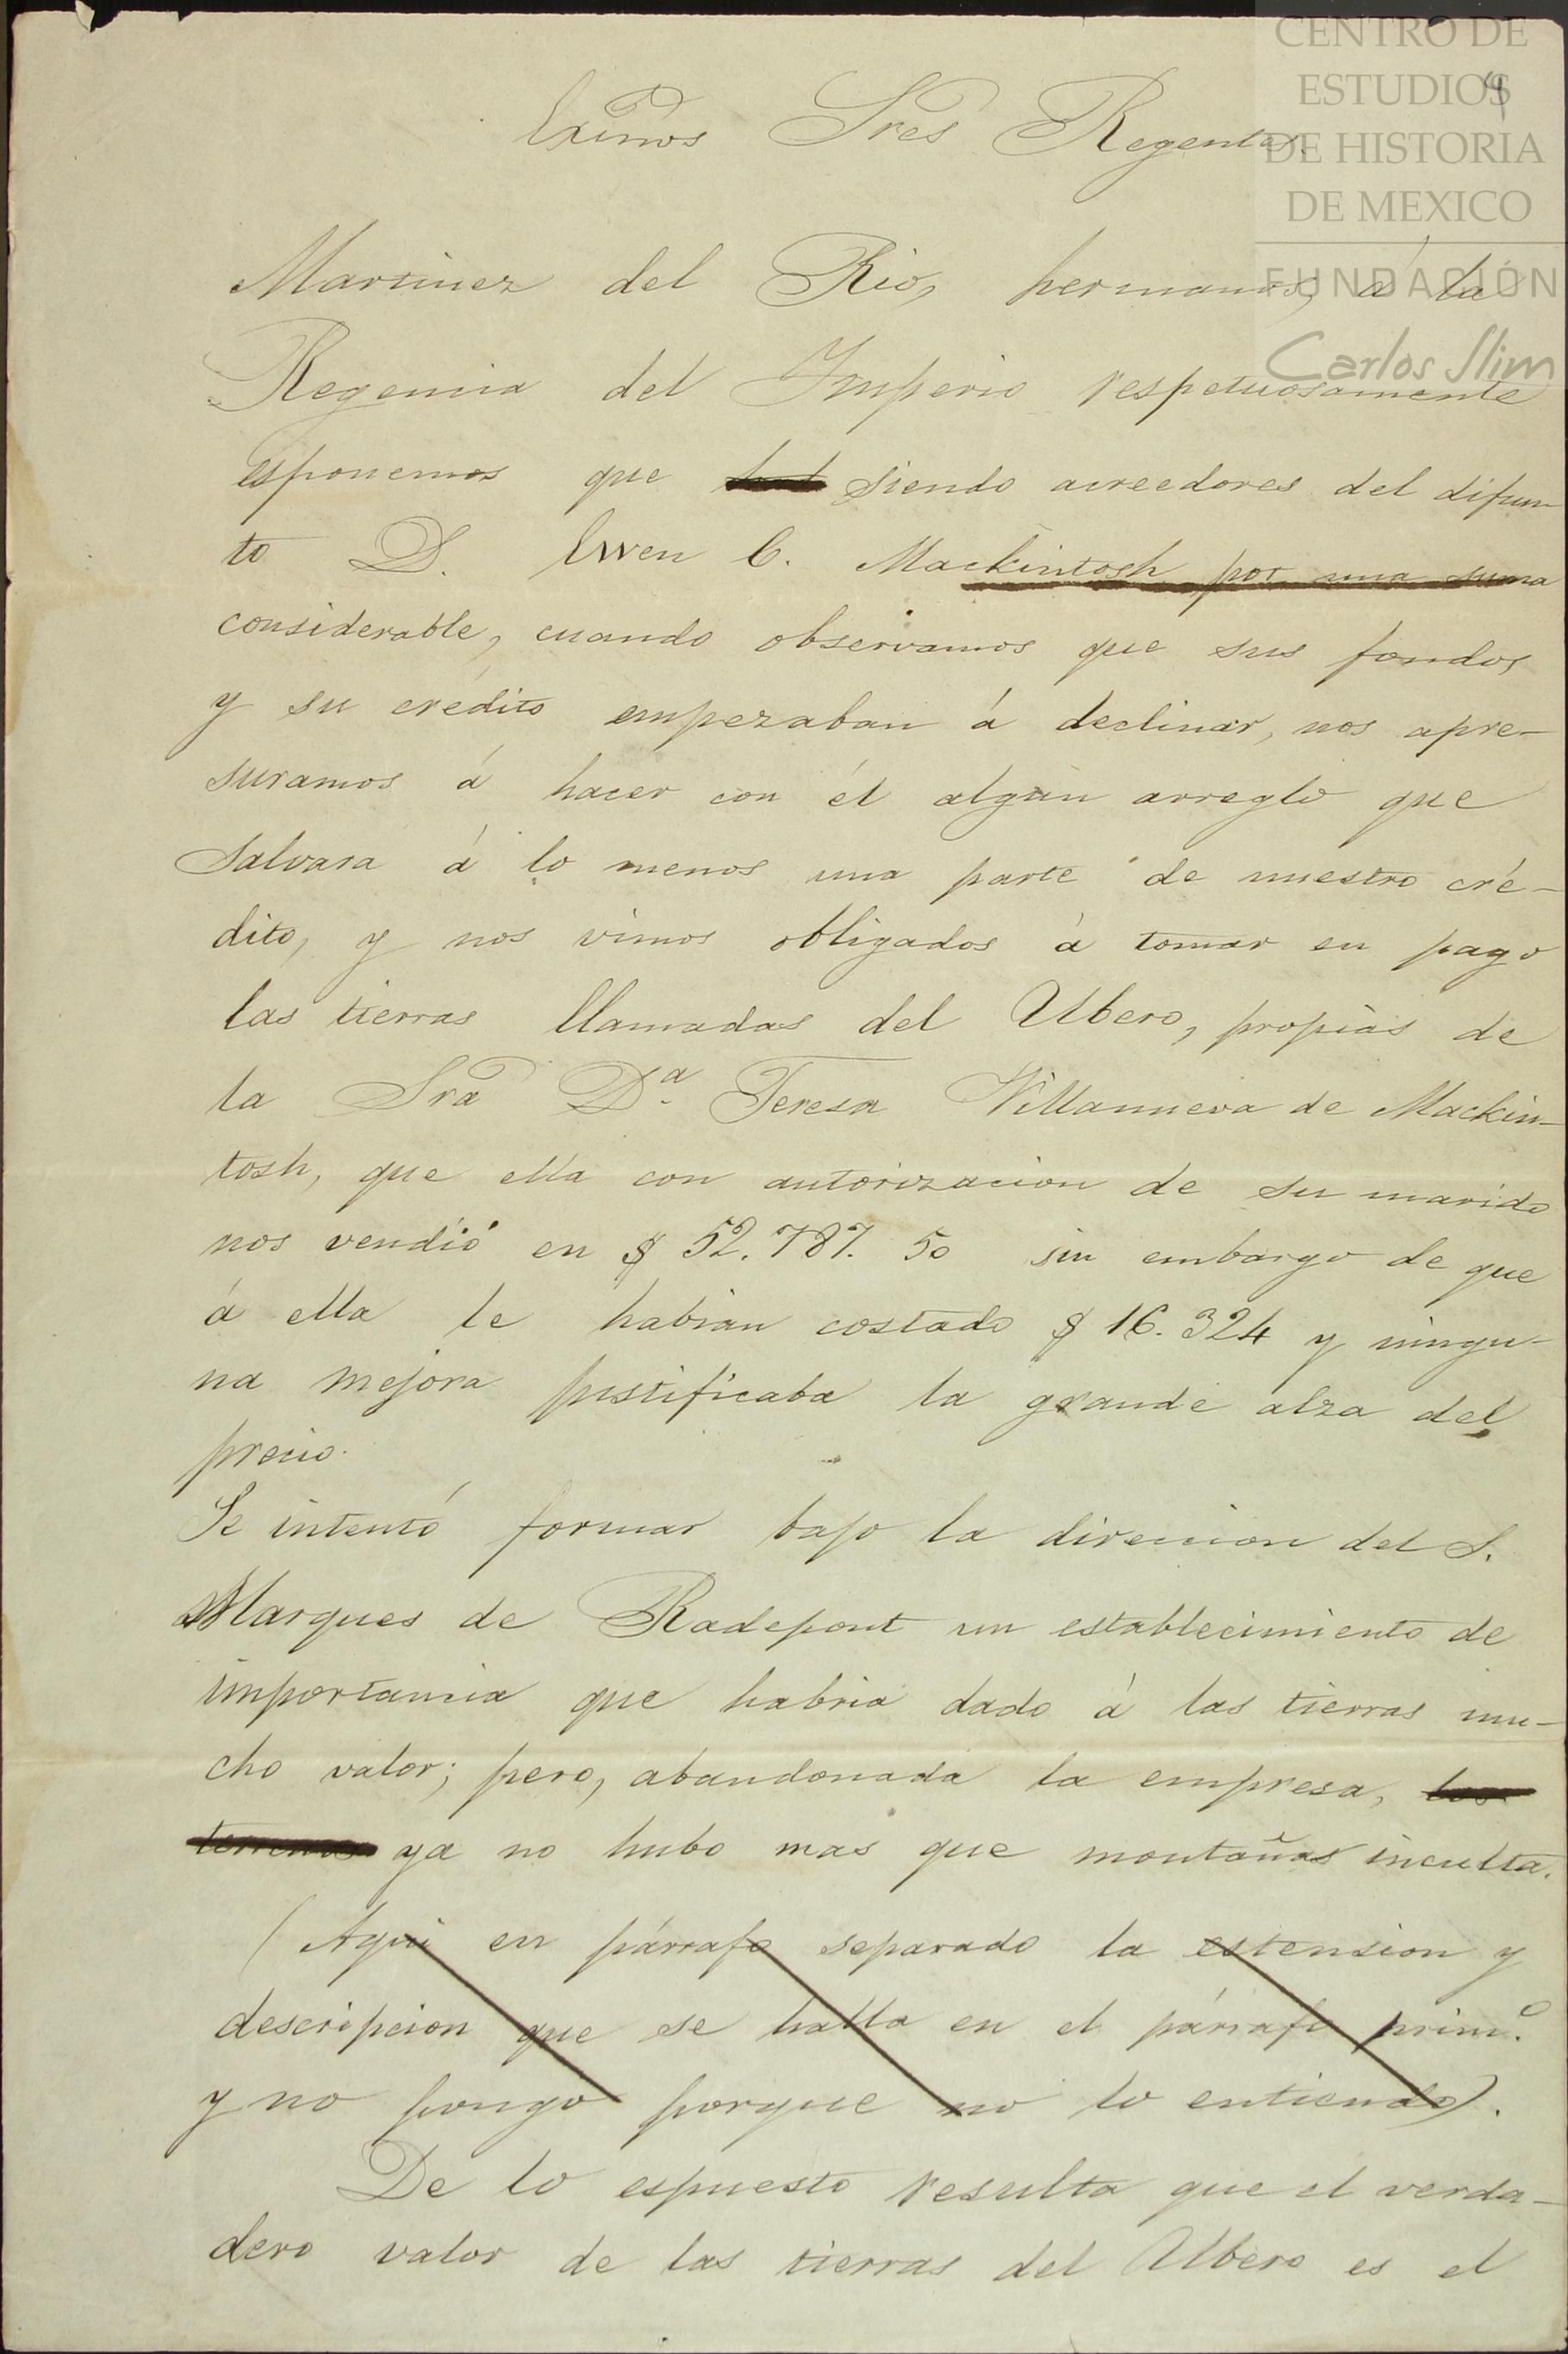 CENTRO DE
ESTUDIOS
DE HISTORIA
DE MEXICO
FUNDACIÓN
Carlos Slim
4
Exmos Sres Regentes.
Martinez del Rio, hermanos, á la
Regencia del Imperio respetuosamente
esponemos que siendo acreedores del difun-
to D. Ewen C. Mackintosh por una suma
considerable, cuando observamos que sus fondos
y su crédito empezaban á declinar, nos apre-
suramos á hacer con él algun arreglo que
salvara á lo menos una parte de nuestro cré-
dito, y nos vimos obligados á tomar en pago
las tierras llamadas del Ubero, propias de
la Sra Dª Teresa Villanueva de Mackin-
tosh, que ella con autorizacion de su marido
nos vendió en $ 52.787. 50 sin embargo de que
á ella le habian costado $ 16.324 y ningu-
na mejora justificaba la grande alza del
precio.
Se intentó formar bajo la direccion del S.
Marques de Radepont un establecimiento de
importancia que habria dado á las tierras mu-
cho valor; pero, abandonada la empresa, los
terrenos ya no hubo mas que montañas inculta.
(Aqui en párrafo separado la estension y
descripcion que se halla en el párrafo prim.º
y no pongo porque no lo entiendo).
De lo espuesto resulta que el verda-
dero valor de las tierras del Ubero es el